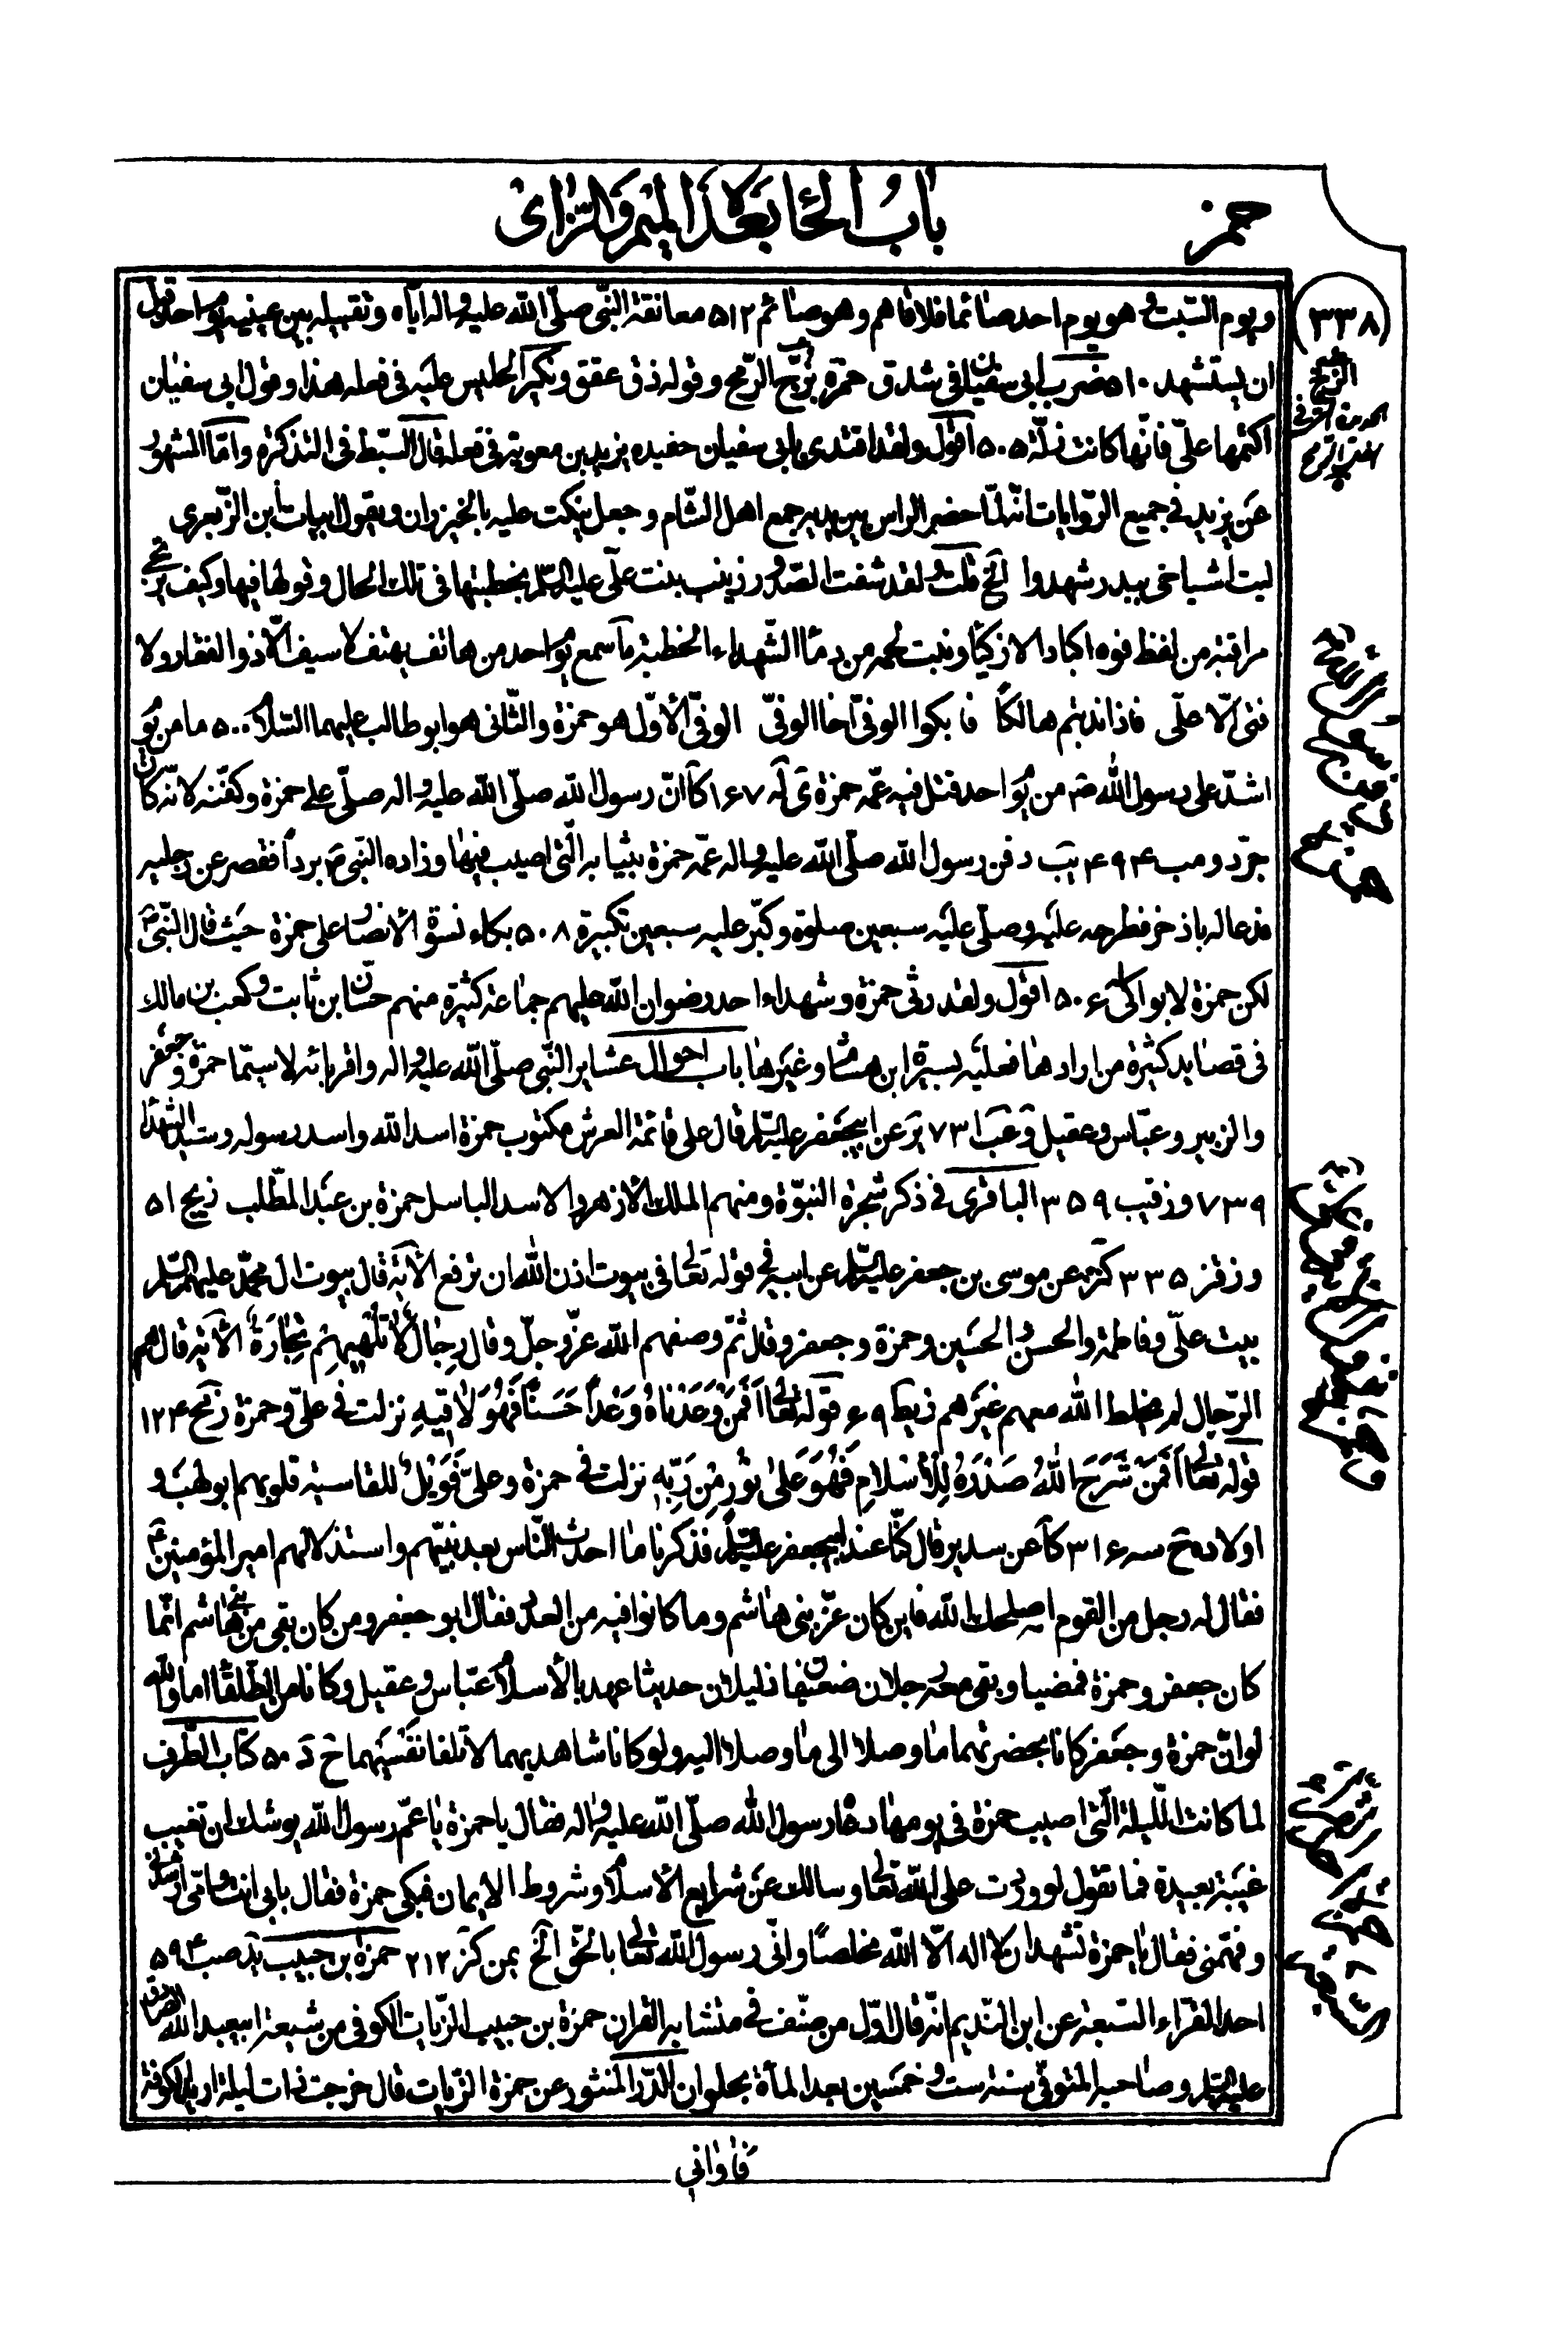 حمز
باب الحاء بعده الميم والزاى
٣٣٨
ويوم السبت وهو يوم احد صائما فلاقاهم وهو صائم ٥١٢ معانقة النبى صلّى الله عليه واله اياه وتقبيله بين عينيه يوم احد قبل
ان يستشهد ٥١٠ ضرب ابى سفيان فى شدق حمزة بزجّ الرّمح وقوله ذق عقق ونكير الحليس عليه فى فعله هذا وقول ابى سفيان
اكتمها علىّ فانّها كانت زلّة ٥٠٥ اقول ولقد اقتدى بابى سفيان حفيده يزيد بن معوية فى فعله قال السّبط فى التذكرة وامّا المشهور
عن يزيد فى جميع الرّوايات انّه لمّا حضر الراس بين يديه جمع اهل الشّام وجعل ينكت عليه بالخيزران ويقول ابيات ابن الزّبعرى
ليت اشياخى ببدر شهدوا الخ قلت ولقد شفت الصّدور زينب بنت علىّ عليه السّلم بخطبتها فى تلك الحال وقولها فيها وكيف يرتجى
مراقبة من لفظ فوه اكباد الازكياء ونبت لحمه من دماء الشّهداء الخطبة ما سمع يوم احد من هاتف يهتف لا سيف الّا ذو الفقار ولا
فتى الّا علىّ فاذا ندبتم هالكا فابكوا الوفىّ اخا الوفىّ الوفىّ الاوّل هو حمزة والثّانى هو ابو طالب عليهما السّلام ٥٠٠ ما من يوم
اشدّ على رسول الله ص من يوم احد قتل فيه عمّه حمزة ى له ١٦٧ كا انّ رسول الله صلّى الله عليه واله صلّى على حمزة وكفّنه لانّه كان
جرّد ومب ٤٩٤ يب دفن رسول الله صلّى الله عليه واله عمّه حمزة بثيابه الّتى اصيب فيها وزاده النّبى ص بردا فقصر عن رجليه
فدعا له باذخر فطرحه عليه وصلّى عليه سبعين صلوة وكبّر عليه سبعين تكبيرة ٥٠٨ بكاء نسوة الانصار على حمزة حيث قال النّبى ص
لكن حمزة لا بواكى له ٥٠٦ اقول ولقد رثى حمزة وشهداء احد رضوان الله عليهم جماعة كثيرة منهم حسّان بن ثابت وكعب بن مالك
فى قصايد كثيرة من ارادها فعليه بسيرة ابن هشام وغيرها باب احوال عشاير النّبى صلّى الله عليه واله واقربائه لا سيّما حمزة وجعفر
والزبير وعبّاس وعقيل وعب ٧٣١ ير عن ابيجعفر عليه السّلم قال على قائمة العرش مكتوب حمزة اسد الله واسد رسوله وسيّد الشهداء
٧٣٩ وزقيب ٣٥٩ الباقرى فى ذكر شجرة النبوّة ومنهم الملك الازهر والاسد الباسل حمزة بن عبد المطّلب زيج ٥١
وزقز ٣٣٥ كنز عن موسى بن جعفر عليه السّلم عن ابيه فى قوله تعالى فى بيوت اذن الله ان ترفع الآية قال بيوت ال محمّد عليهم السّلم
بيت علىّ وفاطمة والحسن والحسين وحمزة وجعفر وقلل ثمّ وصفهم الله عزّ وجلّ وقال رجال لا تلهيهم تجارة الآية قال هم
الرّجال لم يخلط الله معهم غيرهم زيط ٦٩ قوله تعالى افمن وعدناه وعدا حسنا فهو لاقيه نزلت فى علىّ وحمزة زمح ١٢٤
قوله تعالى افمن شرح الله صدره للاسلام فهو على نور من ربّه نزلت فى حمزة وعلىّ فويل للقاسية قلوبهم ابو لهب و
اولاده ح سه ٣١٦ كا عن سدير قال كنّا عند ابيجعفر عليه السّلم فذكرنا ما احدث النّاس بعد نبيّهم واستذلالهم امير المؤمنين ع
فقال له رجل من القوم اصلحك الله فاين كان عزّ بنى هاشم وما كانوا فيه من العدد فقال ابو جعفر ومن كان بقى من بنى هاشم انّما
كان جعفر وحمزة فمضيا وبقى معه رجلان ضعيفان ذليلان حديثا عهد بالاسلام عبّاس وعقيل وكانا من الطّلقاء اما والله
لو انّ حمزة وجعفر كانا بحضرتهما ما وصلا الى ما وصلا اليه ولو كانا شاهديهما لاتلفا نفسيهما ح د ٥٠ كتاب الطّرف
لما كانت اللّيلة الّتى اصيب حمزة فى يومها دعاه رسول الله صلّى الله عليه واله فقال يا حمزة يا عمّ رسول الله يوشك ان تغيب
غيبة بعيدة فما تقول لو وردت على الله تعالى وسالك عن شرايع الاسلام وشروط الايمان فبكى حمزة فقال بابى انت وامّى ارشدنى
وفهّمنى فقال يا حمزة تشهد ان لا اله الّا الله مخلصا وانّى رسول الله تعالى بالحق الخ يمن كز ٢١٢ حمزة بن حبيب يد صب ٥٩٤
احد القرّاء السّبعة عن ابن النّديم انّه قال اوّل من صنّف فى متشابه القران حمزة بن حبيب الزّيات الكوفى من شيعة ابيعبد الله الصّادق
عليه السّلم وصاحبه المتوفّى سنة ست وخمسين بعد المأة بحلوان الدّر المنثور عن حمزة الزّيات قال خرجت ذات ليلة اريد الكوفة
فاوانى